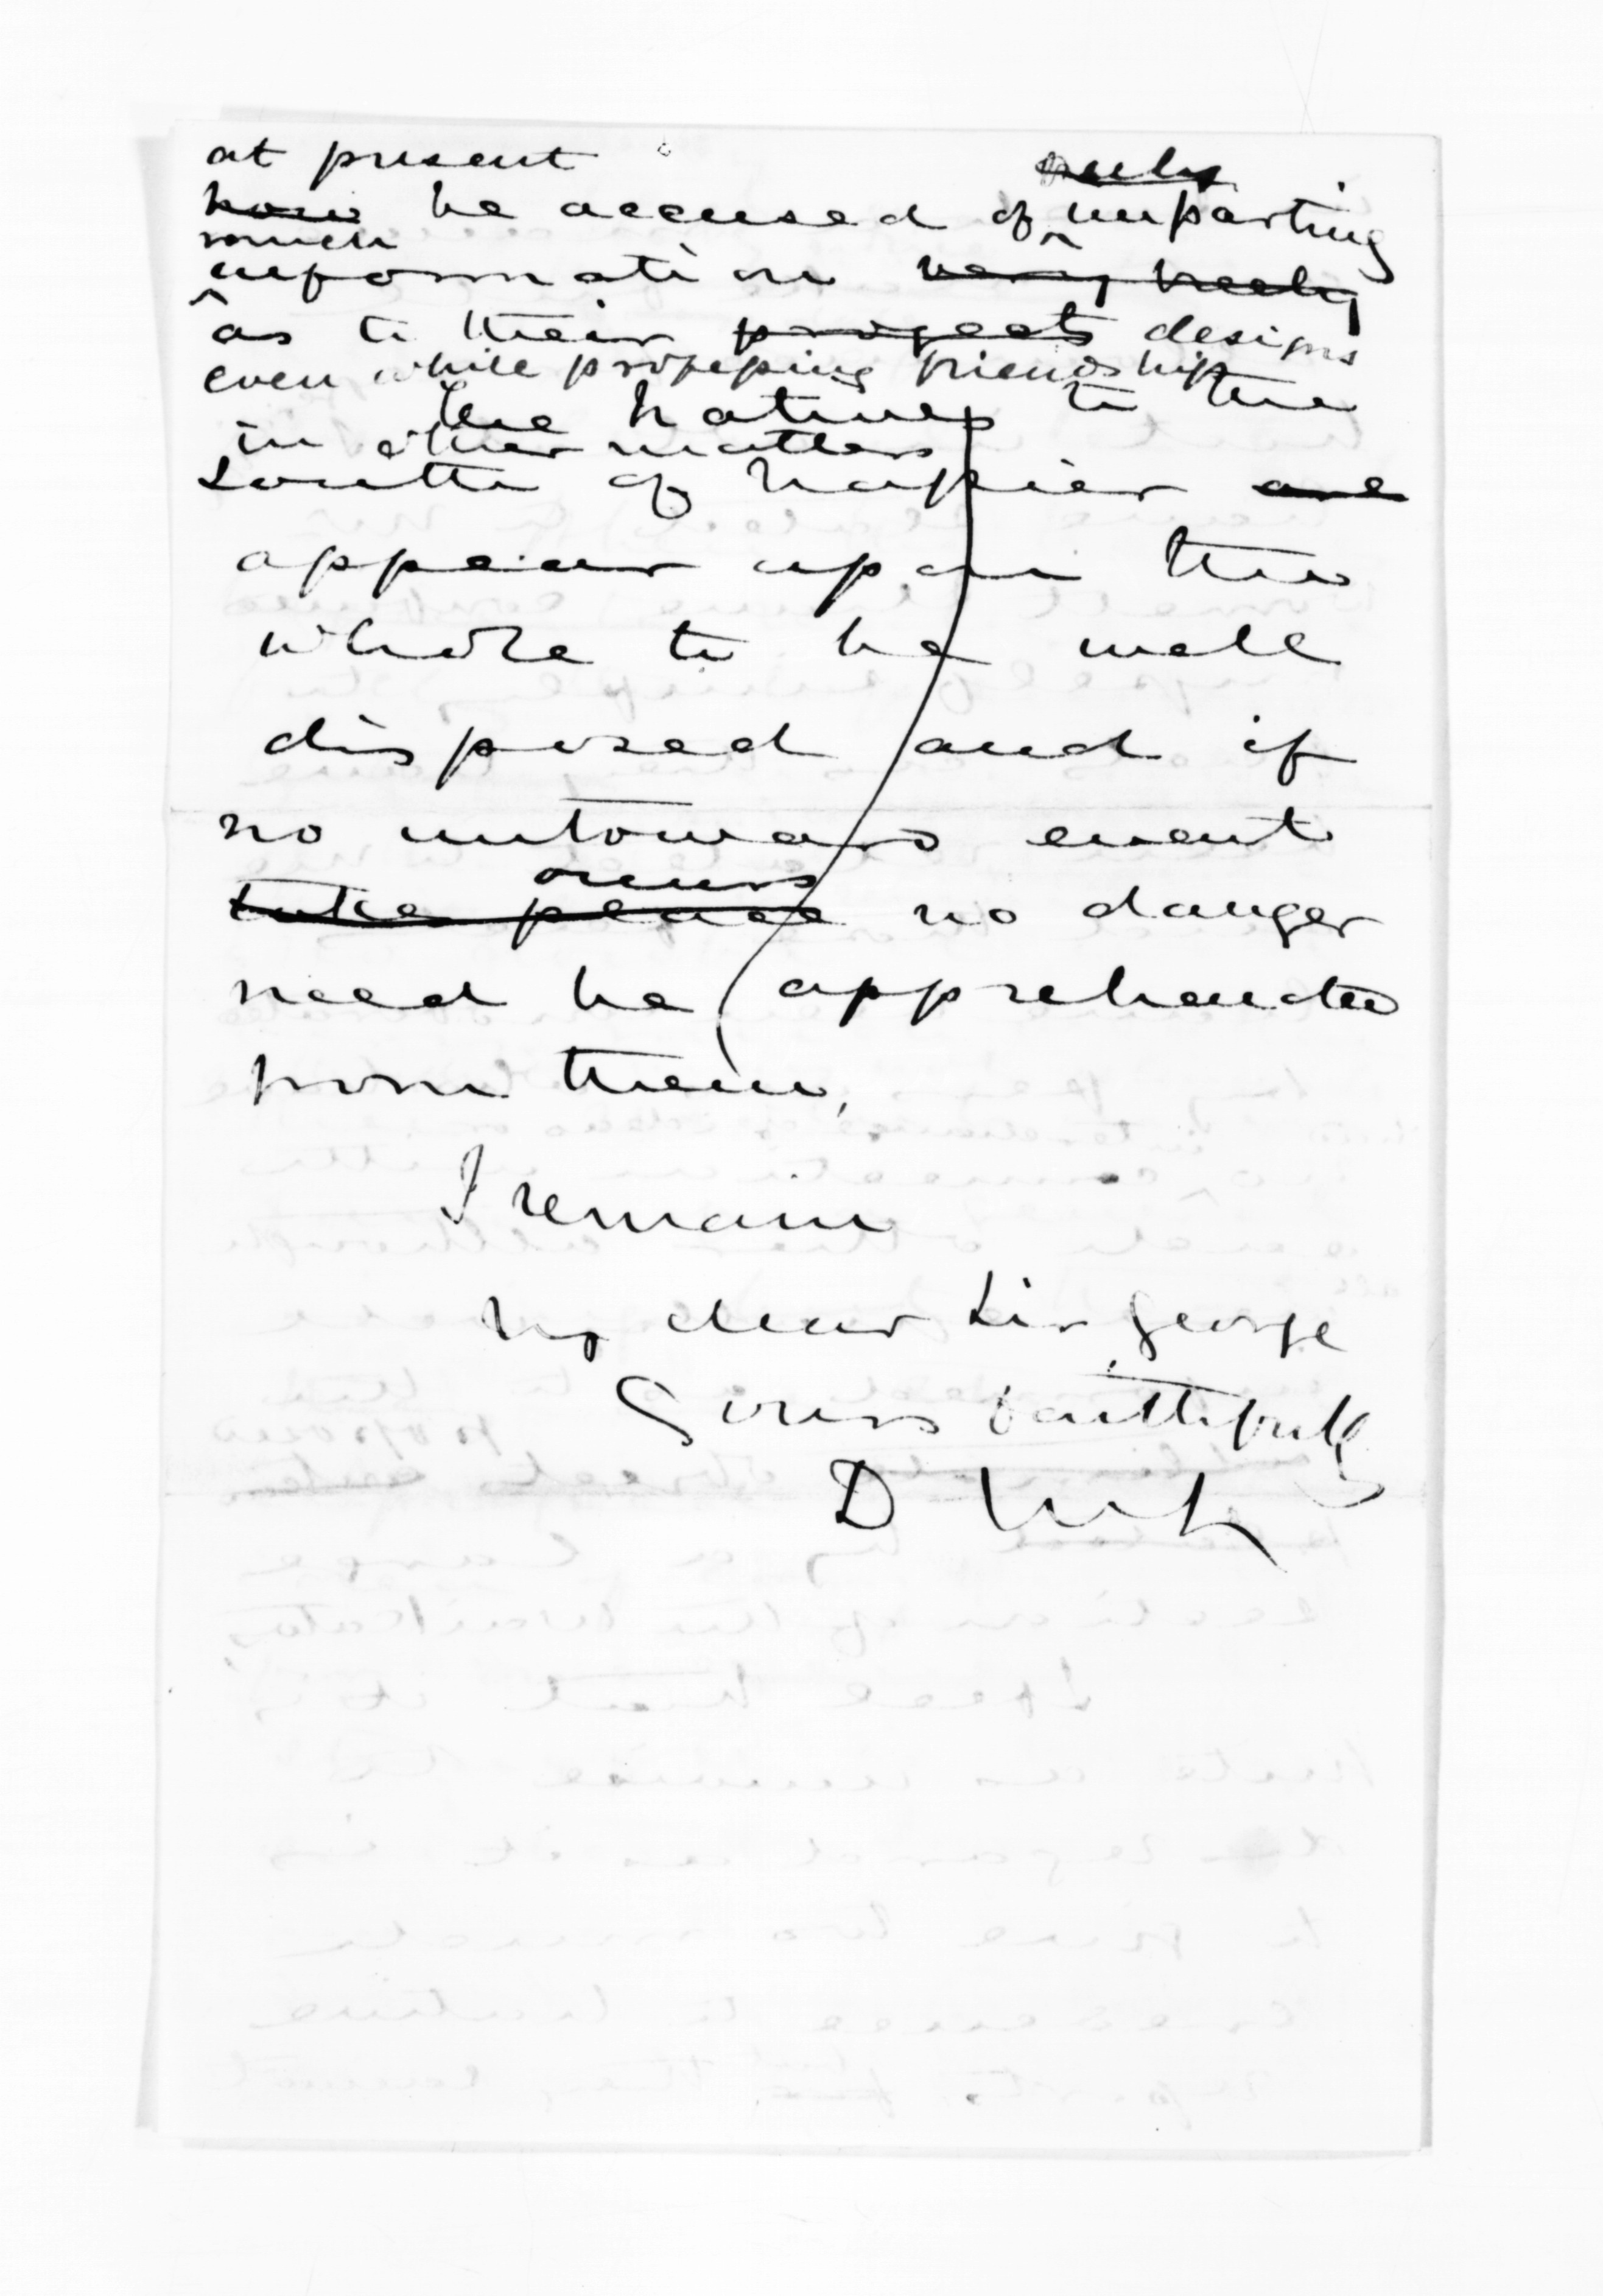 at present
now be accused of freely imparting
much
information very freely
as to their projects designs
even while professing friendship
The Natives to the
in other matters
South of Napier are
appear upon the
whole to be well
disposed and if
no untoward event
occurs
take place no danger
need be apprehended
from them,
I remain
My dear Sir George
Yours faithfully
D McL